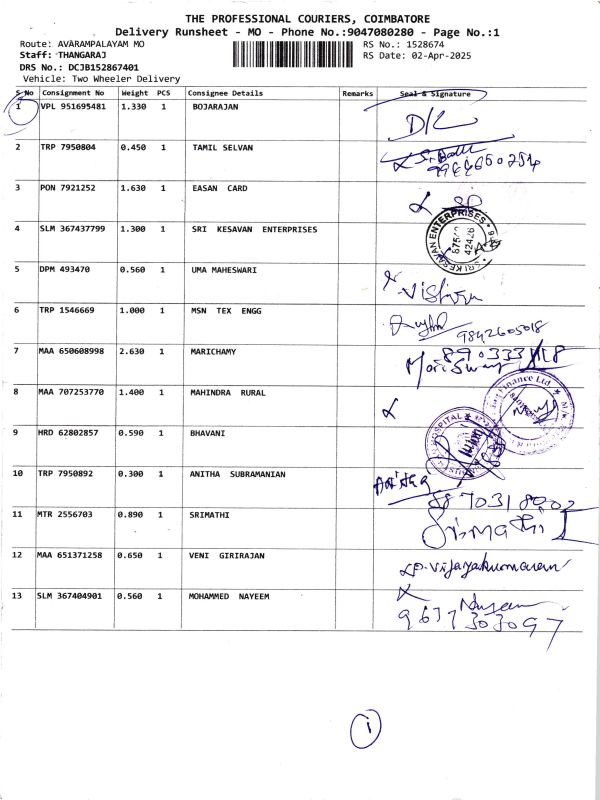 THE PROFESSIONAL COURIERS, COIMBATORE
Delivery Runsheet - MO - Phone No.:9047080280 - Page No.:1
Route: AVARAMPALAYAM MO RS No.: 1528674
Staff: THANGARAJ RS Date: 02-Apr-2025
DRS No.: DCJB152867401
Vehicle: Two Wheeler Delivery
S No Consignment No Weight PCS Consignee Details Remarks Seal & Signature
1 VPL 951695481 1.330 1 BOJARAJAN
2 TRP 7950804 0.450 1 TAMIL SELVAN
3 PON 7921252 1.630 1 EASAN CARD
4 SLM 367437799 1.300 1 SRI KESAVAN ENTERPRISES
SRI KESAVAN ENTERPRISES
5 DPM 493470 0.560 1 UMA MAHESWARI
6 TRP 1546669 1.000 1 MSN TEX ENGG
9842605018
7 MAA 650608998 2.630 1 MARICHAMY
8 MAA 707253770 1.400 1 MAHINDRA RURAL
Finance Ltd.
9 HRD 62802857 0.590 1 BHAVANI
HOSPITAL
10 TRP 7950892 0.300 1 ANITHA SUBRAMANIAN
11 MTR 2556703 0.890 1 SRIMATHI
12 MAA 651371258 0.650 1 VENI GIRIRAJAN
13 SLM 367404901 0.560 1 MOHAMMED NAYEEM
1